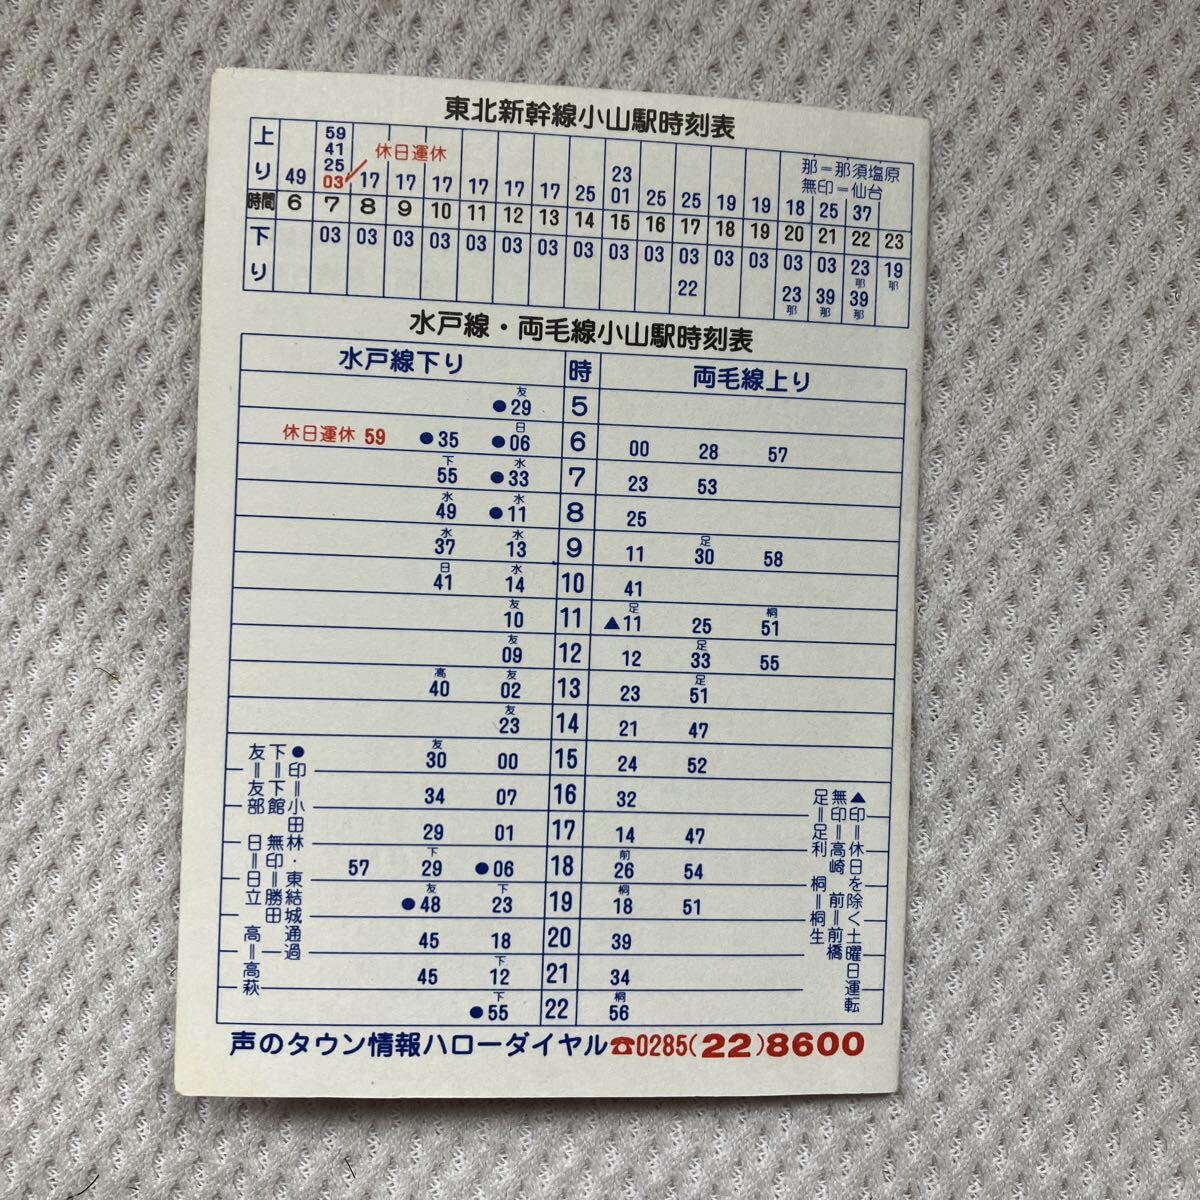 東北新幹線小山駅時刻表
那=那須塩原
無印=仙台
休日運休
上り 49 59 41 25 03 17 17 17 17 17 17 25 23 01 25 25 19 19 18 25 37
時間 6 7 8 9 10 11 12 13 14 15 16 17 18 19 20 21 22 23
下り 03 03 03 03 03 03 03 03 03 03 03 03 03 03 03 23那 19那
22 23那 39那 39那
水戸線・両毛線小山駅時刻表
水戸線下り 時 両毛線上り
●友29 5
休日運休 59 ●35 ●日06 6 00 28 57
下55 ●水33 7 23 53
水49 ●水11 8 25
水37 水13 9 11 足30 58
日41 水14 10 41
友10 11 ▲足11 25 桐51
友09 12 12 足33 55
高40 友02 13 23 足51
友23 14 21 47
友30 00 15 24 52
34 07 16 32
29 01 17 14 47
57 下29 ●06 18 前26 54
●友48 下23 19 桐18 51
45 18 20 39
45 下12 21 34
●下55 22 桐56
●印=小田林・東結城通過
下=下館 無印=勝田
友=友部 日=日立 高=高萩
▲印=休日を除く土曜日運転
無印=高崎 前=前橋
足=足利 桐=桐生
声のタウン情報ハローダイヤル☎0285(22)8600